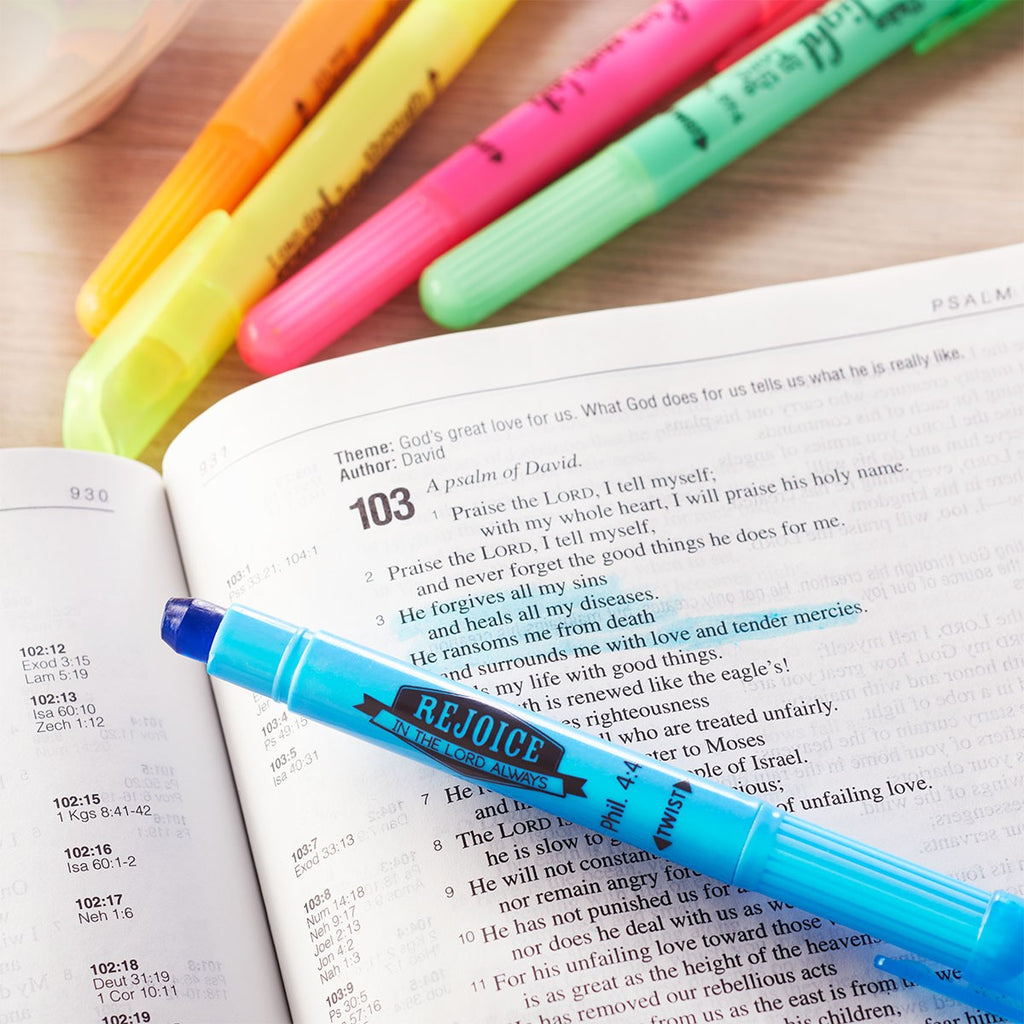 PSALM
931
930
Theme: God's great love for us. What God does for us tells us what he is really like.
Author: David
103
A psalm of David.
1 Praise the LORD, I tell myself;
with my whole heart, I will praise his holy name.
2 Praise the LORD, I tell myself,
and never forget the good things he does for me.
3 He forgives all my sins
and heals all my diseases.
He ransoms me from death
and surrounds me with love and tender mercies.
my life with good things.
is renewed like the eagle's!
righteousness
who are treated unfairly.
to Moses
of Israel.
7
of unfailing love.
8 The LORD
he is slow to
9 He will not
nor remain angry
He has not punished us for
10
nor does he deal with us as
11 For his unfailing love toward those
is as great as the height of the heavens
has removed our rebellious acts
as the east is from
his children,
fear him
REJOICE
IN THE LORD ALWAYS
Phil. 4:4
TWIST
102:12
Exod 3:15
Lam 5:19
102:13
Isa 60:10
Zech 1:12
102:15
1 Kgs 8:41-42
102:16
Isa 60:1-2
102:17
Neh 1:6
102:18
Deut 31:19
1 Cor 10:11
102:19
103:1
Pss 33:21, 104:1
103:4
Ps 49:15
103:5
Isa 40:31
103:7
Exod 33:13
103:8
Num 14:18
Neh 9:17
Joel 2:13
Jon 4:2
Nah 1:3
103:9
Ps 30:5
57:16